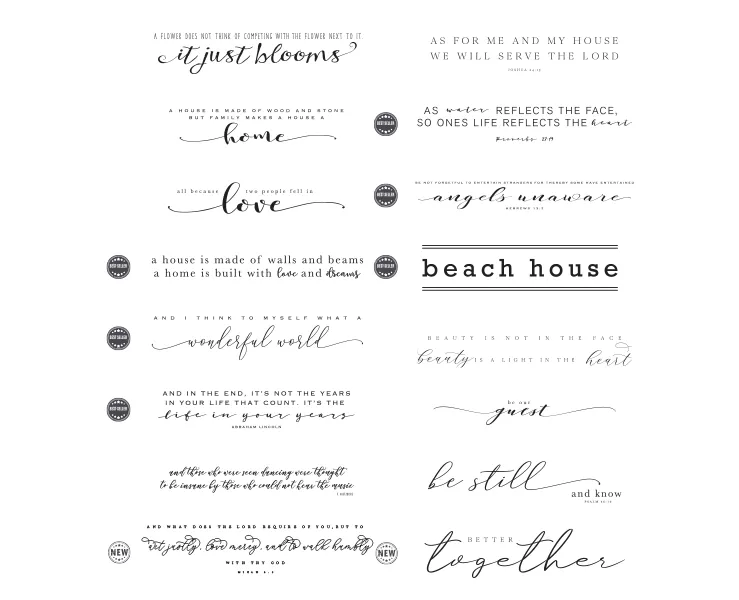 A FLOWER DOES NOT THINK OF COMPETING WITH THE FLOWER NEXT TO IT.
it just blooms
A HOUSE IS MADE OF WOOD AND STONE
BUT FAMILY MAKES A HOUSE A
home
all because two people fell in
love
BEST SELLER
a house is made of walls and beams
a home is built with love and dreams
BEST SELLER
AND I THINK TO MYSELF WHAT A
wonderful world
BEST SELLER
AND IN THE END, IT'S NOT THE YEARS
IN YOUR LIFE THAT COUNT. IT'S THE
life in your years
ABRAHAM LINCOLN
and those who were seen dancing were thought
to be insane by those who could not hear the music
NEW
AND WHAT DOES THE LORD REQUIRE OF YOU, BUT TO
act justly, love mercy, and to walk humbly
WITH THY GOD
MICAH 6:8
AS FOR ME AND MY HOUSE
WE WILL SERVE THE LORD
JOSHUA 24:15
BEST SELLER
AS water REFLECTS THE FACE,
SO ONES LIFE REFLECTS THE heart
Proverbs 27:19
BEST SELLER
BE NOT FORGETFUL TO ENTERTAIN STRANGERS FOR THEREBY SOME HAVE ENTERTAINED
angels unaware
HEBREWS 13:2
BEST SELLER
beach house
BEAUTY IS NOT IN THE FACE
beauty IS A LIGHT IN THE heart
be our
guest
be still
and know
PSALM 46:10
NEW
BETTER
together